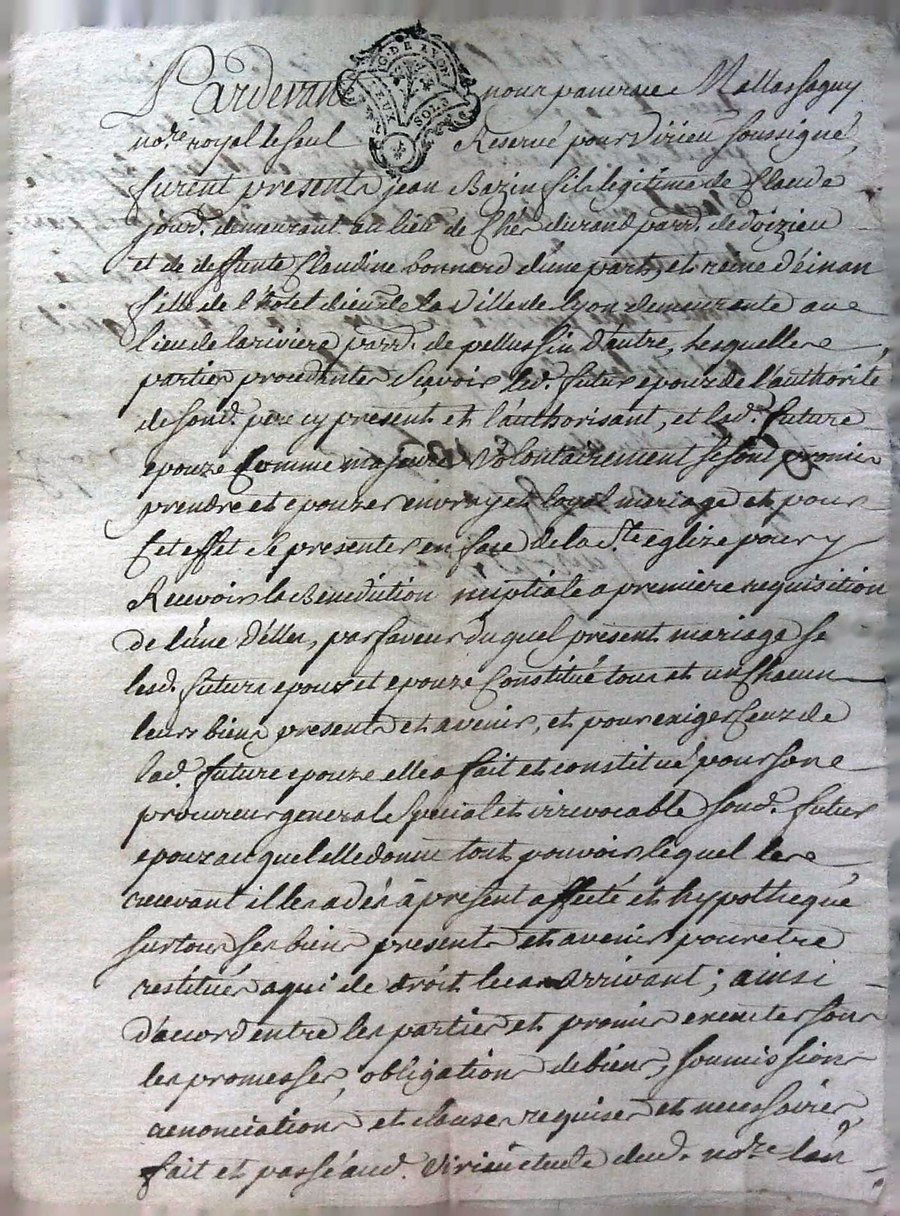 Pardevant nous pancrace Mallassagny
GÉN. DE LYON
DEUX SOLS
no.re royal le seul Reservé pour Virieu soussigné,
furent presents jean Bazin fils legitime de Claude
jourd. demeurant au lieu de Chez durand parr. de doizieu
et de deffunte Claudine bonnard d'une part, et reine d'éinan
fille de l'hotel dieu de la ville de lyon demeurante au
lieu de la riviere parr. de pellussin d'autre, Lesquelles
parties procedantes Sçavoir led. futur epoux de l'authorité
de sond. pere cy present et l'authorisant, et lad. future
epouze Comme majeure volontairement se sont promis
prendre et epouzer en vray et loyal mariage et pour
Cet effet se presenter en face de la s.te eglize pour y
Recevoir la Benediction nuptiale a premiere requisition
de l'une d'élles, par faveur duquel present mariage se
lesd. futurs epoux et epouze Constitué tous et un Chacun
leurs biens presents et avenir, et pour exiger Ceux de
lad. future epouze elle a fait et constitué pour son
procureur general Special et irrevocable sond. futur
epoux auquel elle donne tout pouvoir lequel les
recevant il les a dés à present affecté et hypothequé
sur tous ses biens presents et avenir pour etre
restitués a qui de droit le cas arrivant; ainsi
d'acord entre les parties et promis executer sous
les promesses, obligations de biens, soumissions
renonciations et clauses requises et necessaires,
fait et passé aud. Virieu etude dud. no.re l'an